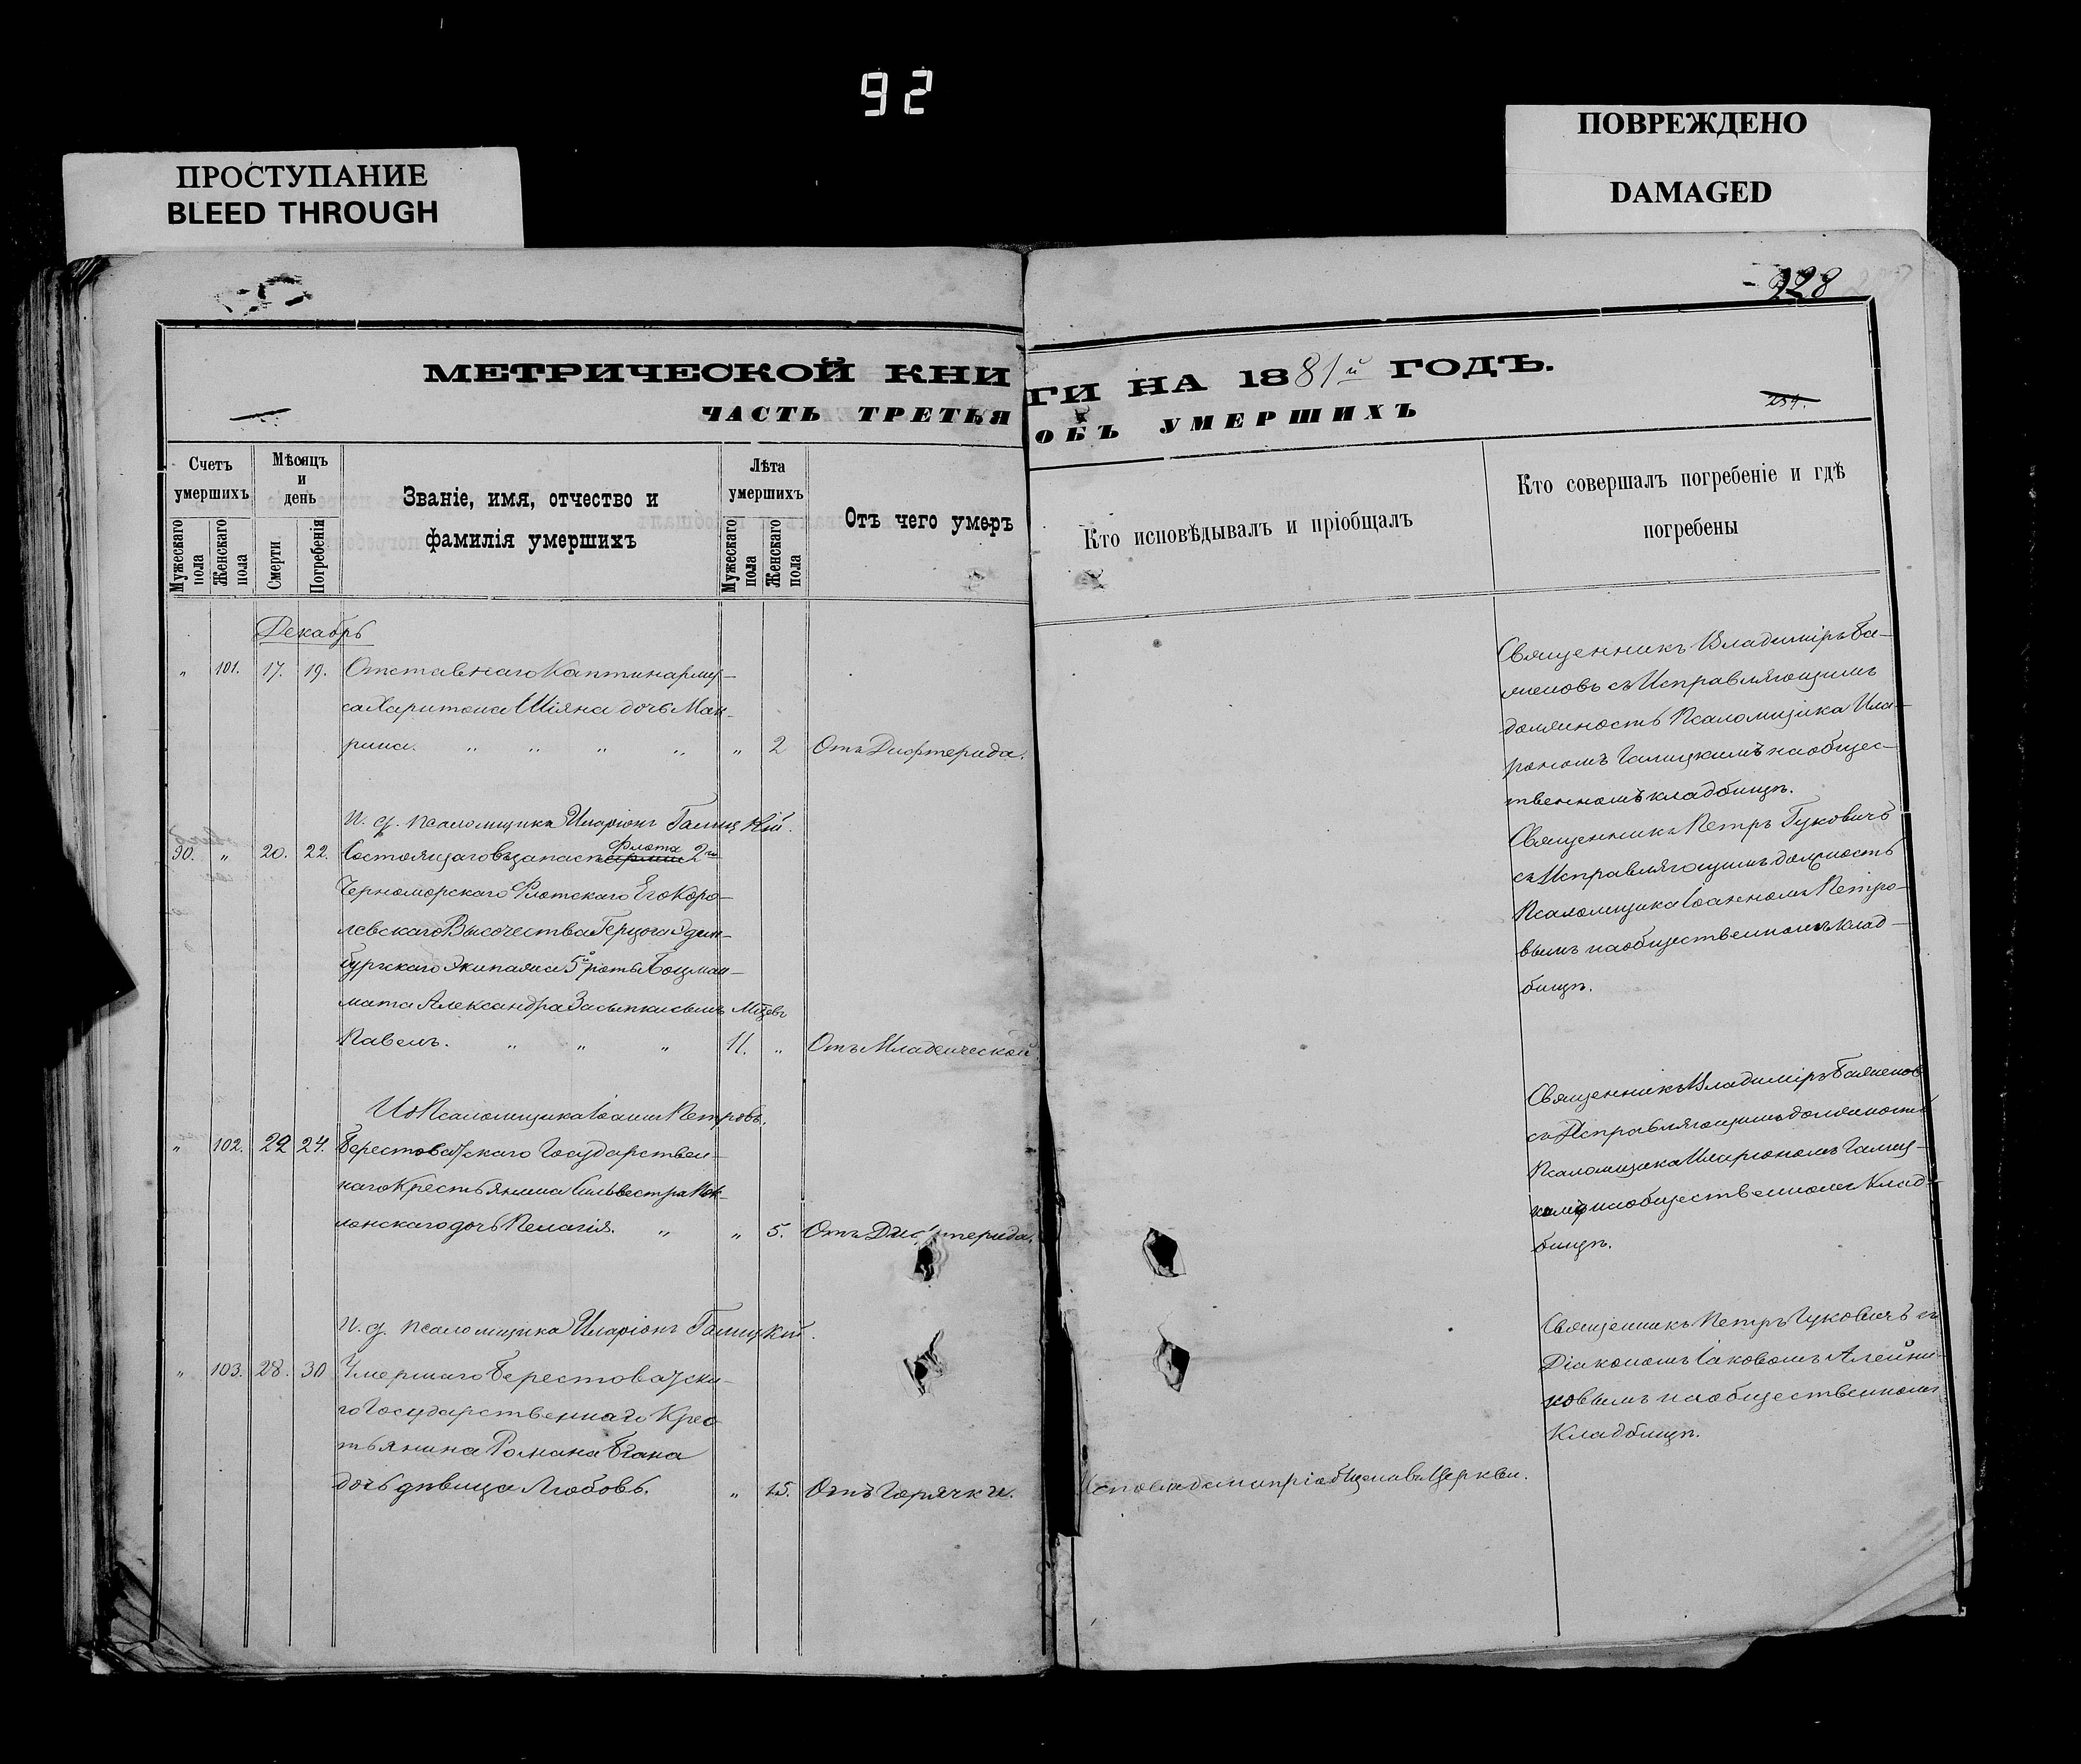 92
ПРОСТУПАНИЕ
BLEED THROUGH
ПОВРЕЖДЕНО
DAMAGED
228
МЕТРИЧЕСКОЙ КНИГИ НА 1881й ГОДЪ.
ЧАСТЬ ТРЕТЬЯ ОБЪ УМЕРШИХЪ
Счетъ умершихъ
Мужескаго пола
Женскаго пола
Мѣсяцъ и день
Смерти.
Погребенія
Званіе, имя, отчество и
фамилія умершихъ
Лѣта умершихъ
Мужескаго пола
Женскаго пола
Отъ чего умеръ
Кто исповѣдывалъ и пріобщалъ
Кто совершалъ погребеніе и гдѣ
погребены
Декабрь
" 101. 17. 19. Отставнаго Каптинарму-
са Харитона Шіяна дочь Мак-
рина. " " " " " 2 Отъ Дифтерида.
Священникъ Владиміръ Ба-
женовъ съ Исправляющимъ
должность Псаломщика Ила-
ріономъ Галицкимъ на общес-
твенномъ кладбищѣ.
И. д. псаломщика Иларіонъ Галицкій.
30. " 20. 22. Состоящаго въ запасѣ флота 2го
Черноморскаго Флотскаго Его Коро-
левскаго Высочества Герцога Эдин-
бургскаго Экипажа 5й роты Боцман-
мата Александра Засыпки сынъ Мѣсевъ
Павелъ. " " " 11. " Отъ Младенческой.
Священникъ Петръ Гуковичъ
съ Исправляющимъ должность
Псаломщика Іоанномъ Петро-
вымъ на общественномъ клад-
бищѣ.
Ио Псаломщика Іоаннъ Петровъ.
" 102. 22 24. Берестоватскаго Государствен-
наго Крестьянина Сильвестра Пок-
лонскаго дочь Пелагія. " " 5. Отъ Дифтерида.
Священникъ Владиміръ Баженовъ
съ Исправляющимъ должность
Псаломщика Иларіономъ Галиц-
кимъ на общественномъ Клад-
бищѣ.
И. д. псаломщика Иларіонъ Галицкій.
" 103. 28. 30 Умершаго Берестоватска-
го Государственнаго Крес-
тьянина Романа Бгана
дочь дѣвица Любовь. " 15. Отъ Горячки. Исповѣдана и пріобщена въ Церкви.
Священникъ Петръ Гуковичъ съ
Діакономъ Іаковомъ Алейни-
ковымъ на общественномъ
Кладбищѣ.